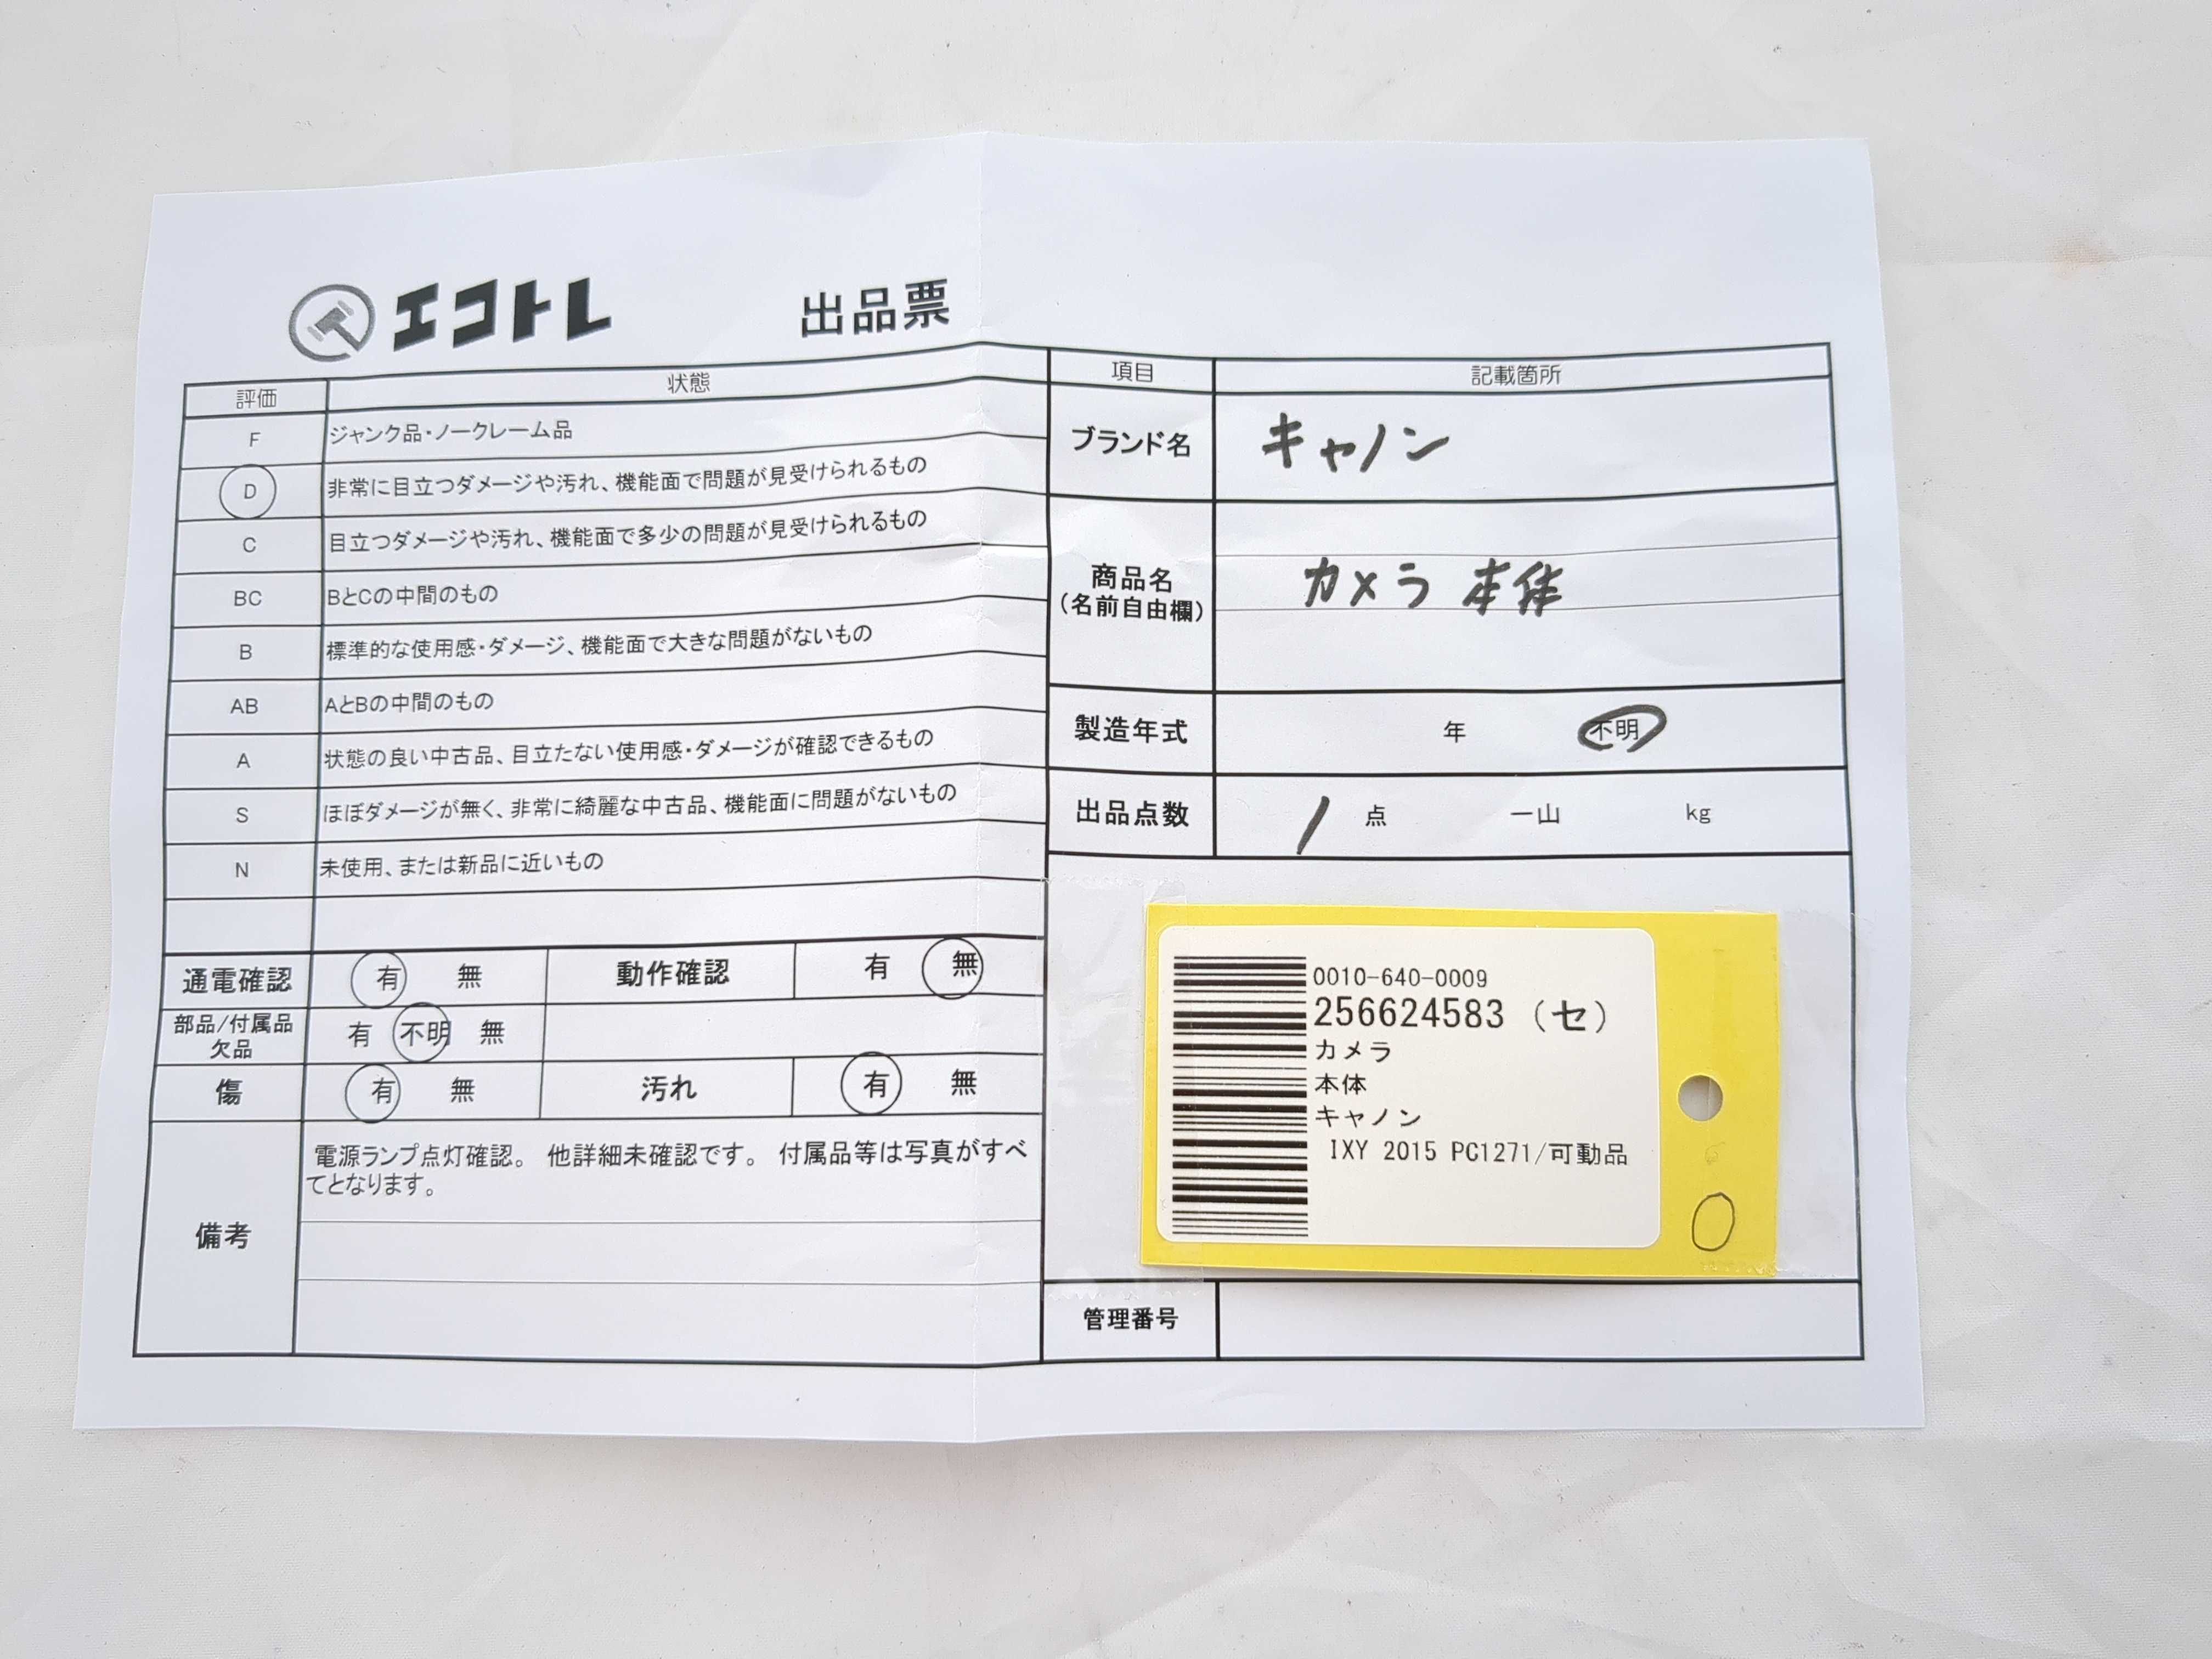 エコトレ 出品票
評価 状態
F ジャンク品・ノークレーム品
D 非常に目立つダメージや汚れ、機能面で問題が見受けられるもの
C 目立つダメージや汚れ、機能面で多少の問題が見受けられるもの
BC BとCの中間のもの
B 標準的な使用感・ダメージ、機能面で大きな問題がないもの
AB AとBの中間のもの
A 状態の良い中古品、目立たない使用感・ダメージが確認できるもの
S ほぼダメージが無く、非常に綺麗な中古品、機能面に問題がないもの
N 未使用、または新品に近いもの
通電確認 有 無 動作確認 有 無
部品/付属品
欠品 有 不明 無
傷 有 無 汚れ 有 無
備考
電源ランプ点灯確認。 他詳細未確認です。 付属品等は写真がすべ
てとなります。
項目 記載箇所
ブランド名 キャノン
商品名
(名前自由欄)
カメラ 本体
製造年式 年 不明
出品点数 1 点 一山 kg
0010-640-0009
256624583 (セ)
カメラ
本体
キャノン
IXY 2015 PC1271/可動品
管理番号